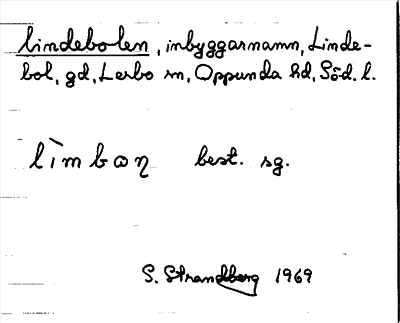 lindebolen, inbyggarnamn, Linde-
bol, gd, Lerbo sn, Oppunda hd, Söd. l.
lìmbαη best. sg.
S. Strandberg 1969